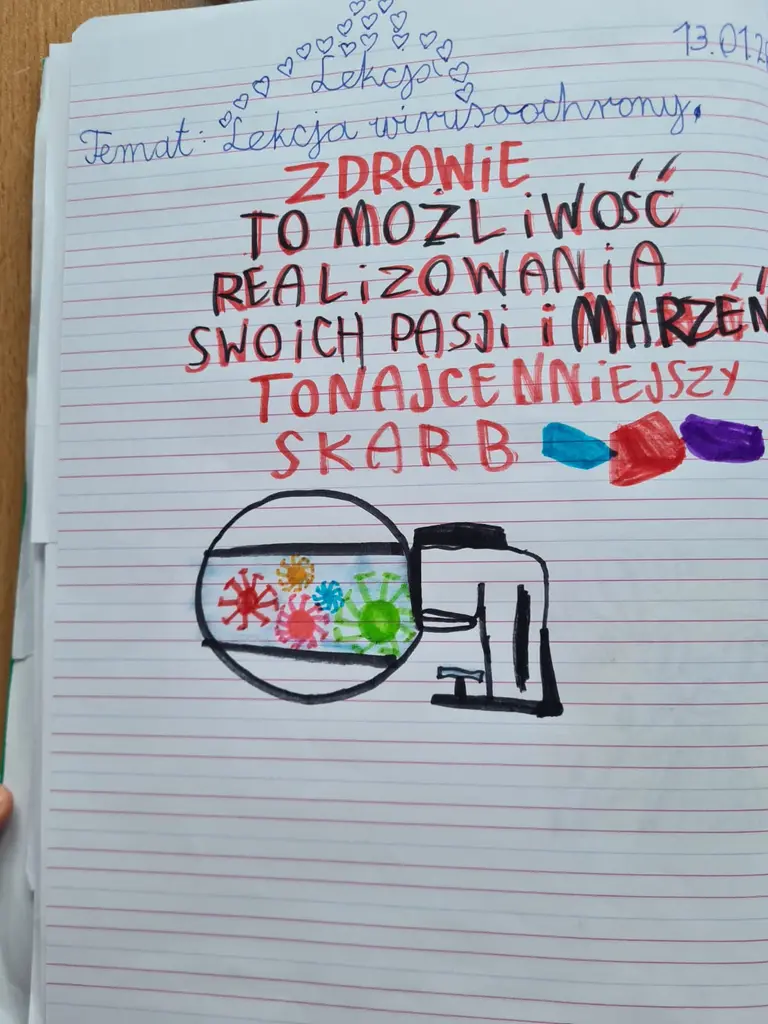 Lekcja 13.01.2
Temat: Lekcja wirusoochrony.
ZDROWiE
TO MOŻLiWOŚĆ
REALiZOWANiA
SWOiCH PASJi i MARZEŃ
TO NAJCENNiEJSZY
SKARB